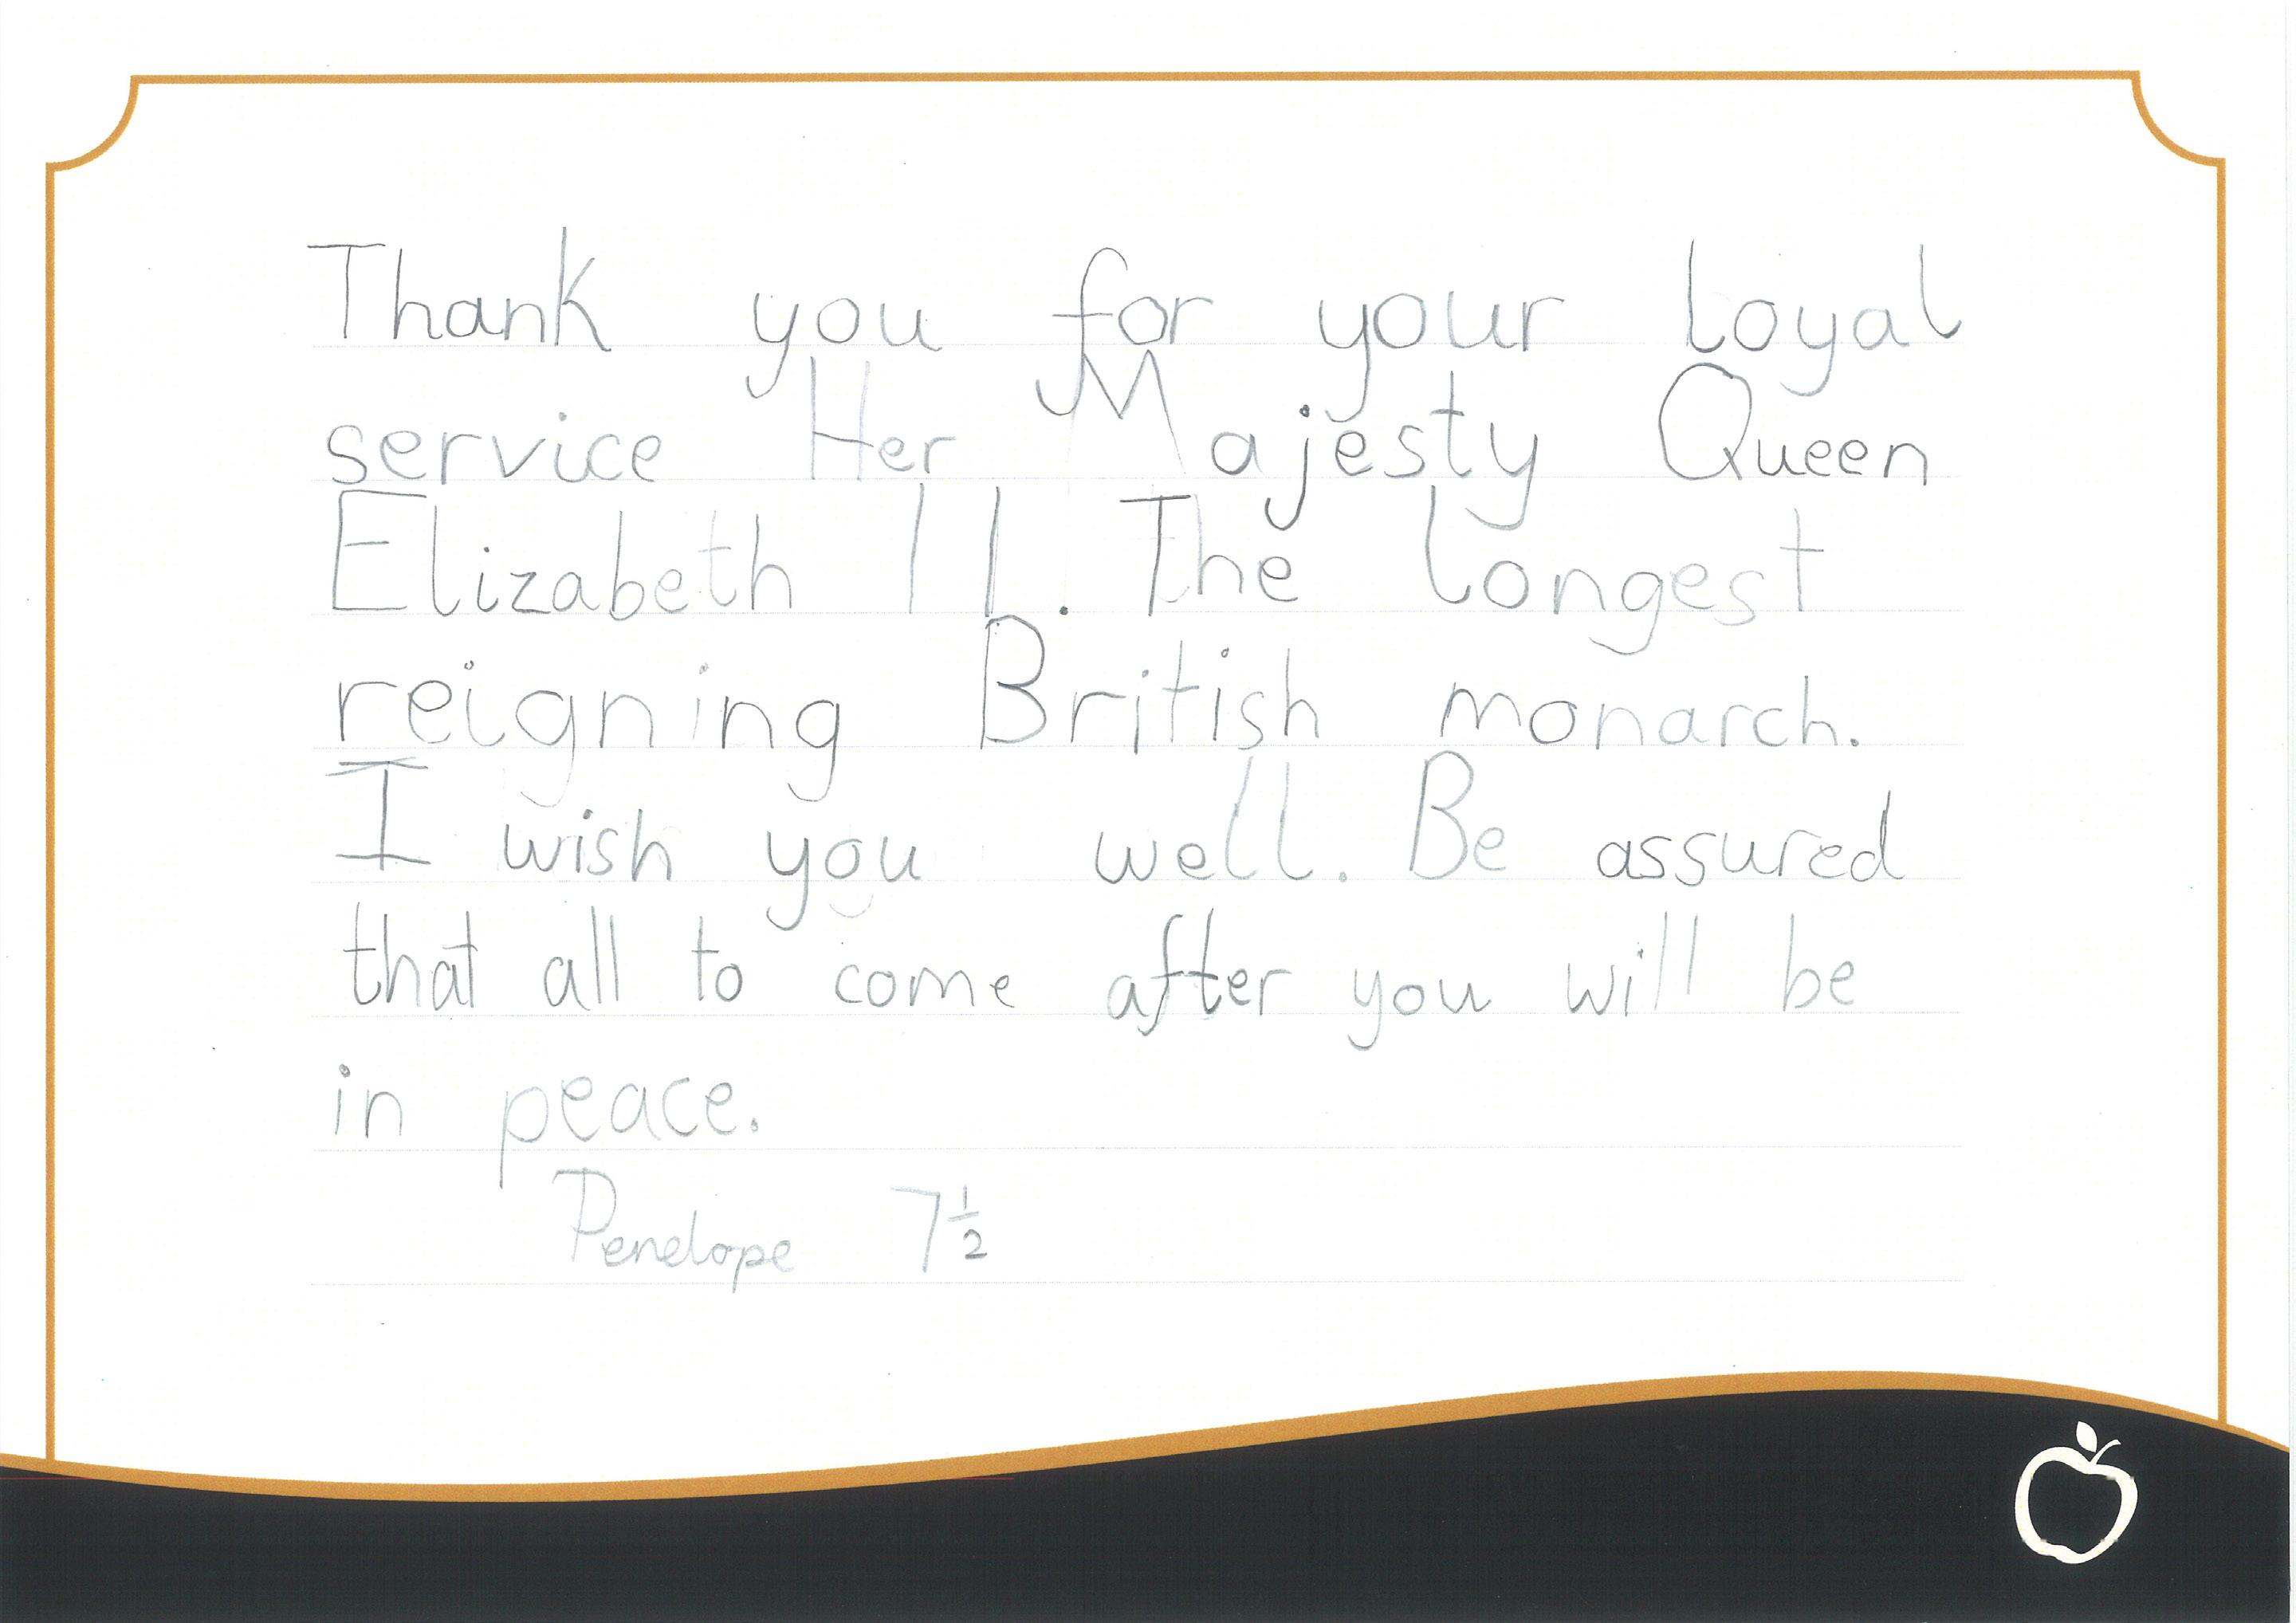 Thank you for your loyal
service Her Majesty Queen
Elizabeth II. The longest
reigning British monarch.
I wish you well. Be assured
that all to come after you will be
in peace.
Penelope 7½